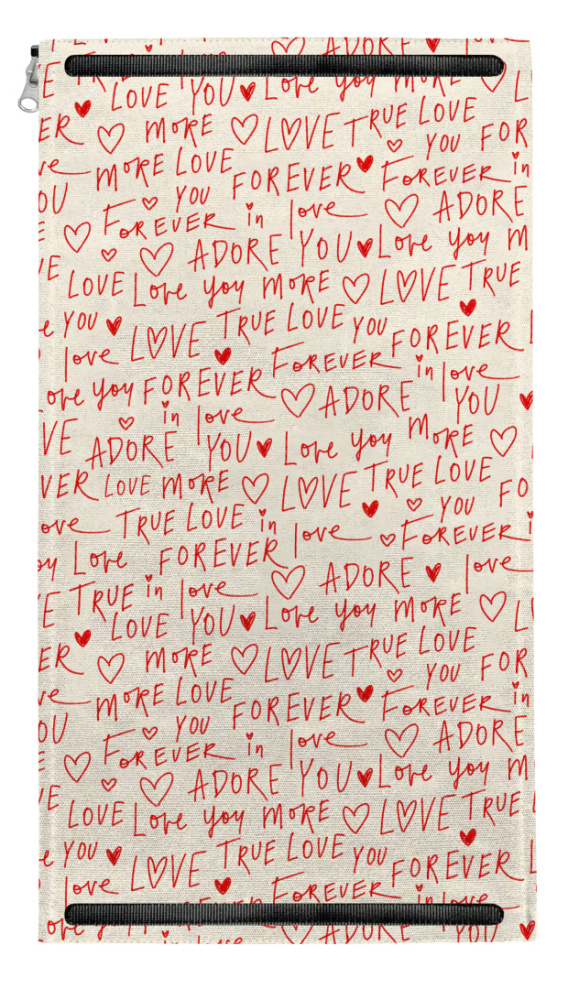 ADORE
LOVE YOU Love you more
ER MORE LOVE TRUE LOVE
MORE LOVE YOU FOR
YOU FOREVER FOREVER in
FOREVER in love ADORE
ADORE YOU Love you M
LOVE Love you MORE LOVE TRUE
YOU LOVE TRUE LOVE YOU FOREVER
love FOREVER in love
ove you FOREVER ADORE YOU
VE in love
ADORE YOU Love you MORE
VER LOVE MORE LOVE TRUE LOVE
ove TRUE LOVE in love YOU FO
FOREVER
Love FOREVER ADORE love
TRUE in love
LOVE YOU Love you MORE
ER MORE LOVE TRUE LOVE
MORE LOVE YOU FOR
YOU FOREVER FOREVER in
FOREVER in love ADORE
ADORE YOU Love you M
LOVE Love you MORE LOVE TRUE
YOU LOVE TRUE LOVE YOU FOREVER
love FOREVER in love
ADORE YOU